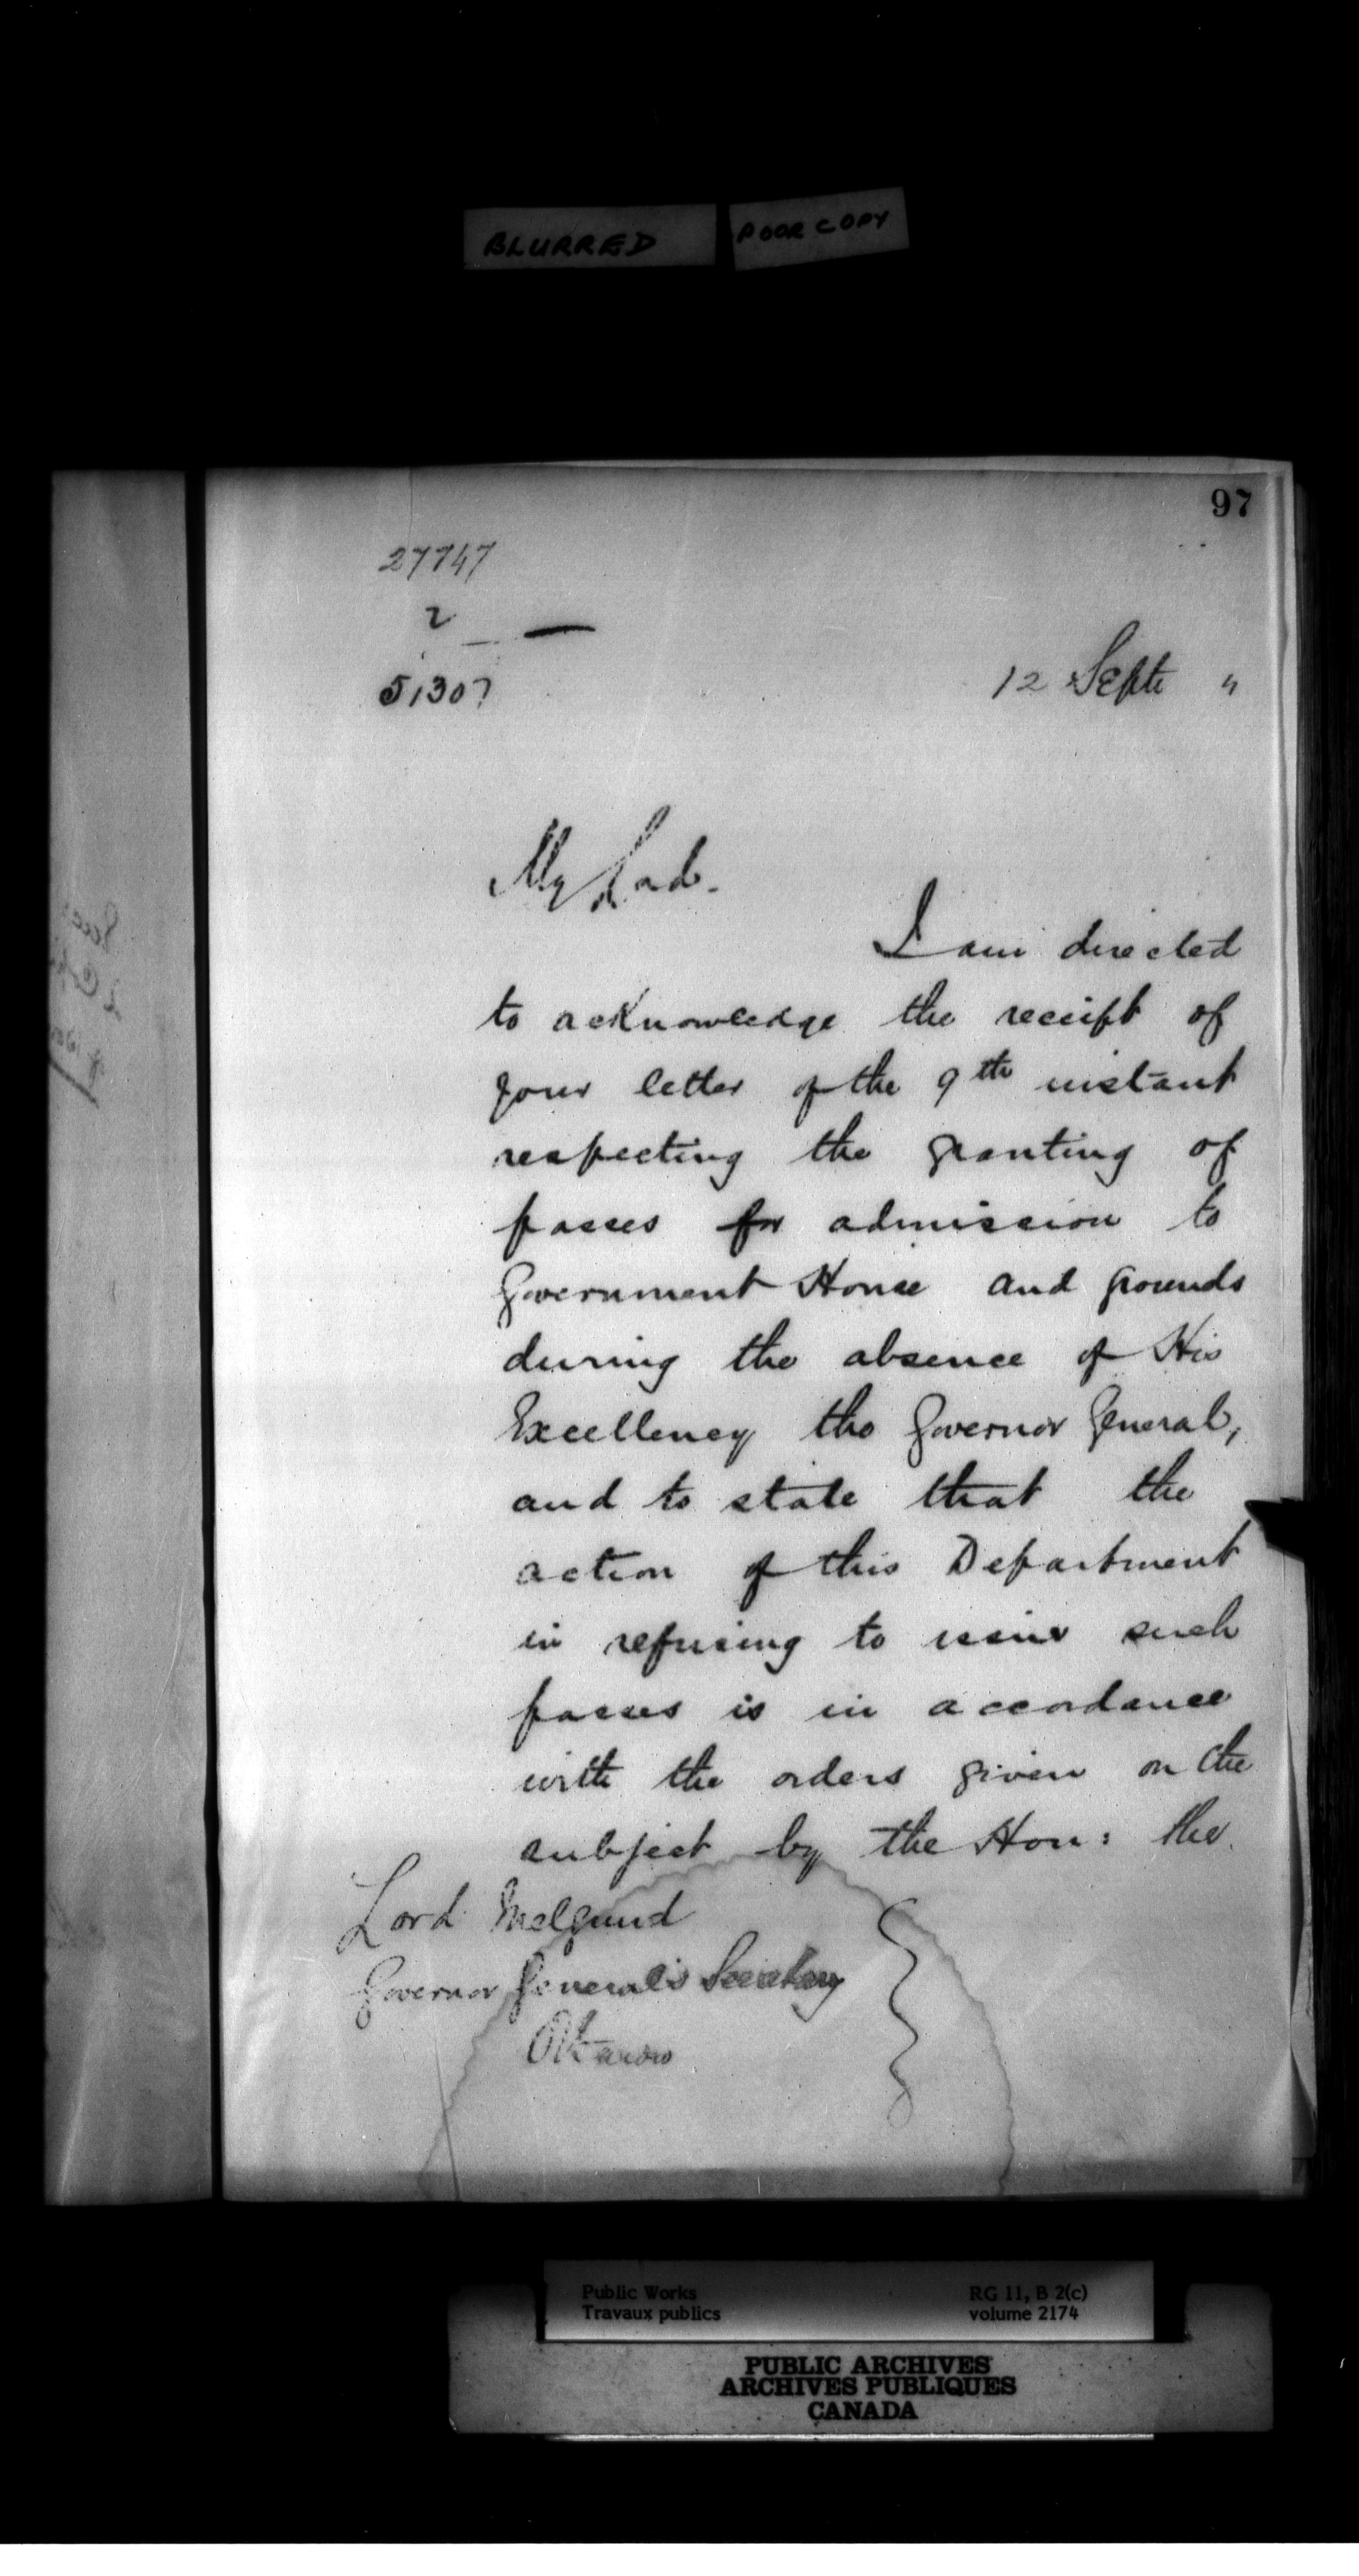 BLURRED POOR COPY
97
27747
2
51307
12 Septe "
My Lord.
I am directed
to acknowledge the receipt of
your letter of the 9th instant
respecting the granting of
passes for admission to
Government House and grounds
during the absence of His
Excellency the Governor General,
and to state that the
action of this Department
in refusing to issue such
passes is in accordance
with the orders given on the
subject by the Hon: the
Lord Melgund
Governor General's Secretary
Ottawa
Public Works RG 11, B 2(c)
Travaux publics volume 2174
PUBLIC ARCHIVES
ARCHIVES PUBLIQUES
CANADA